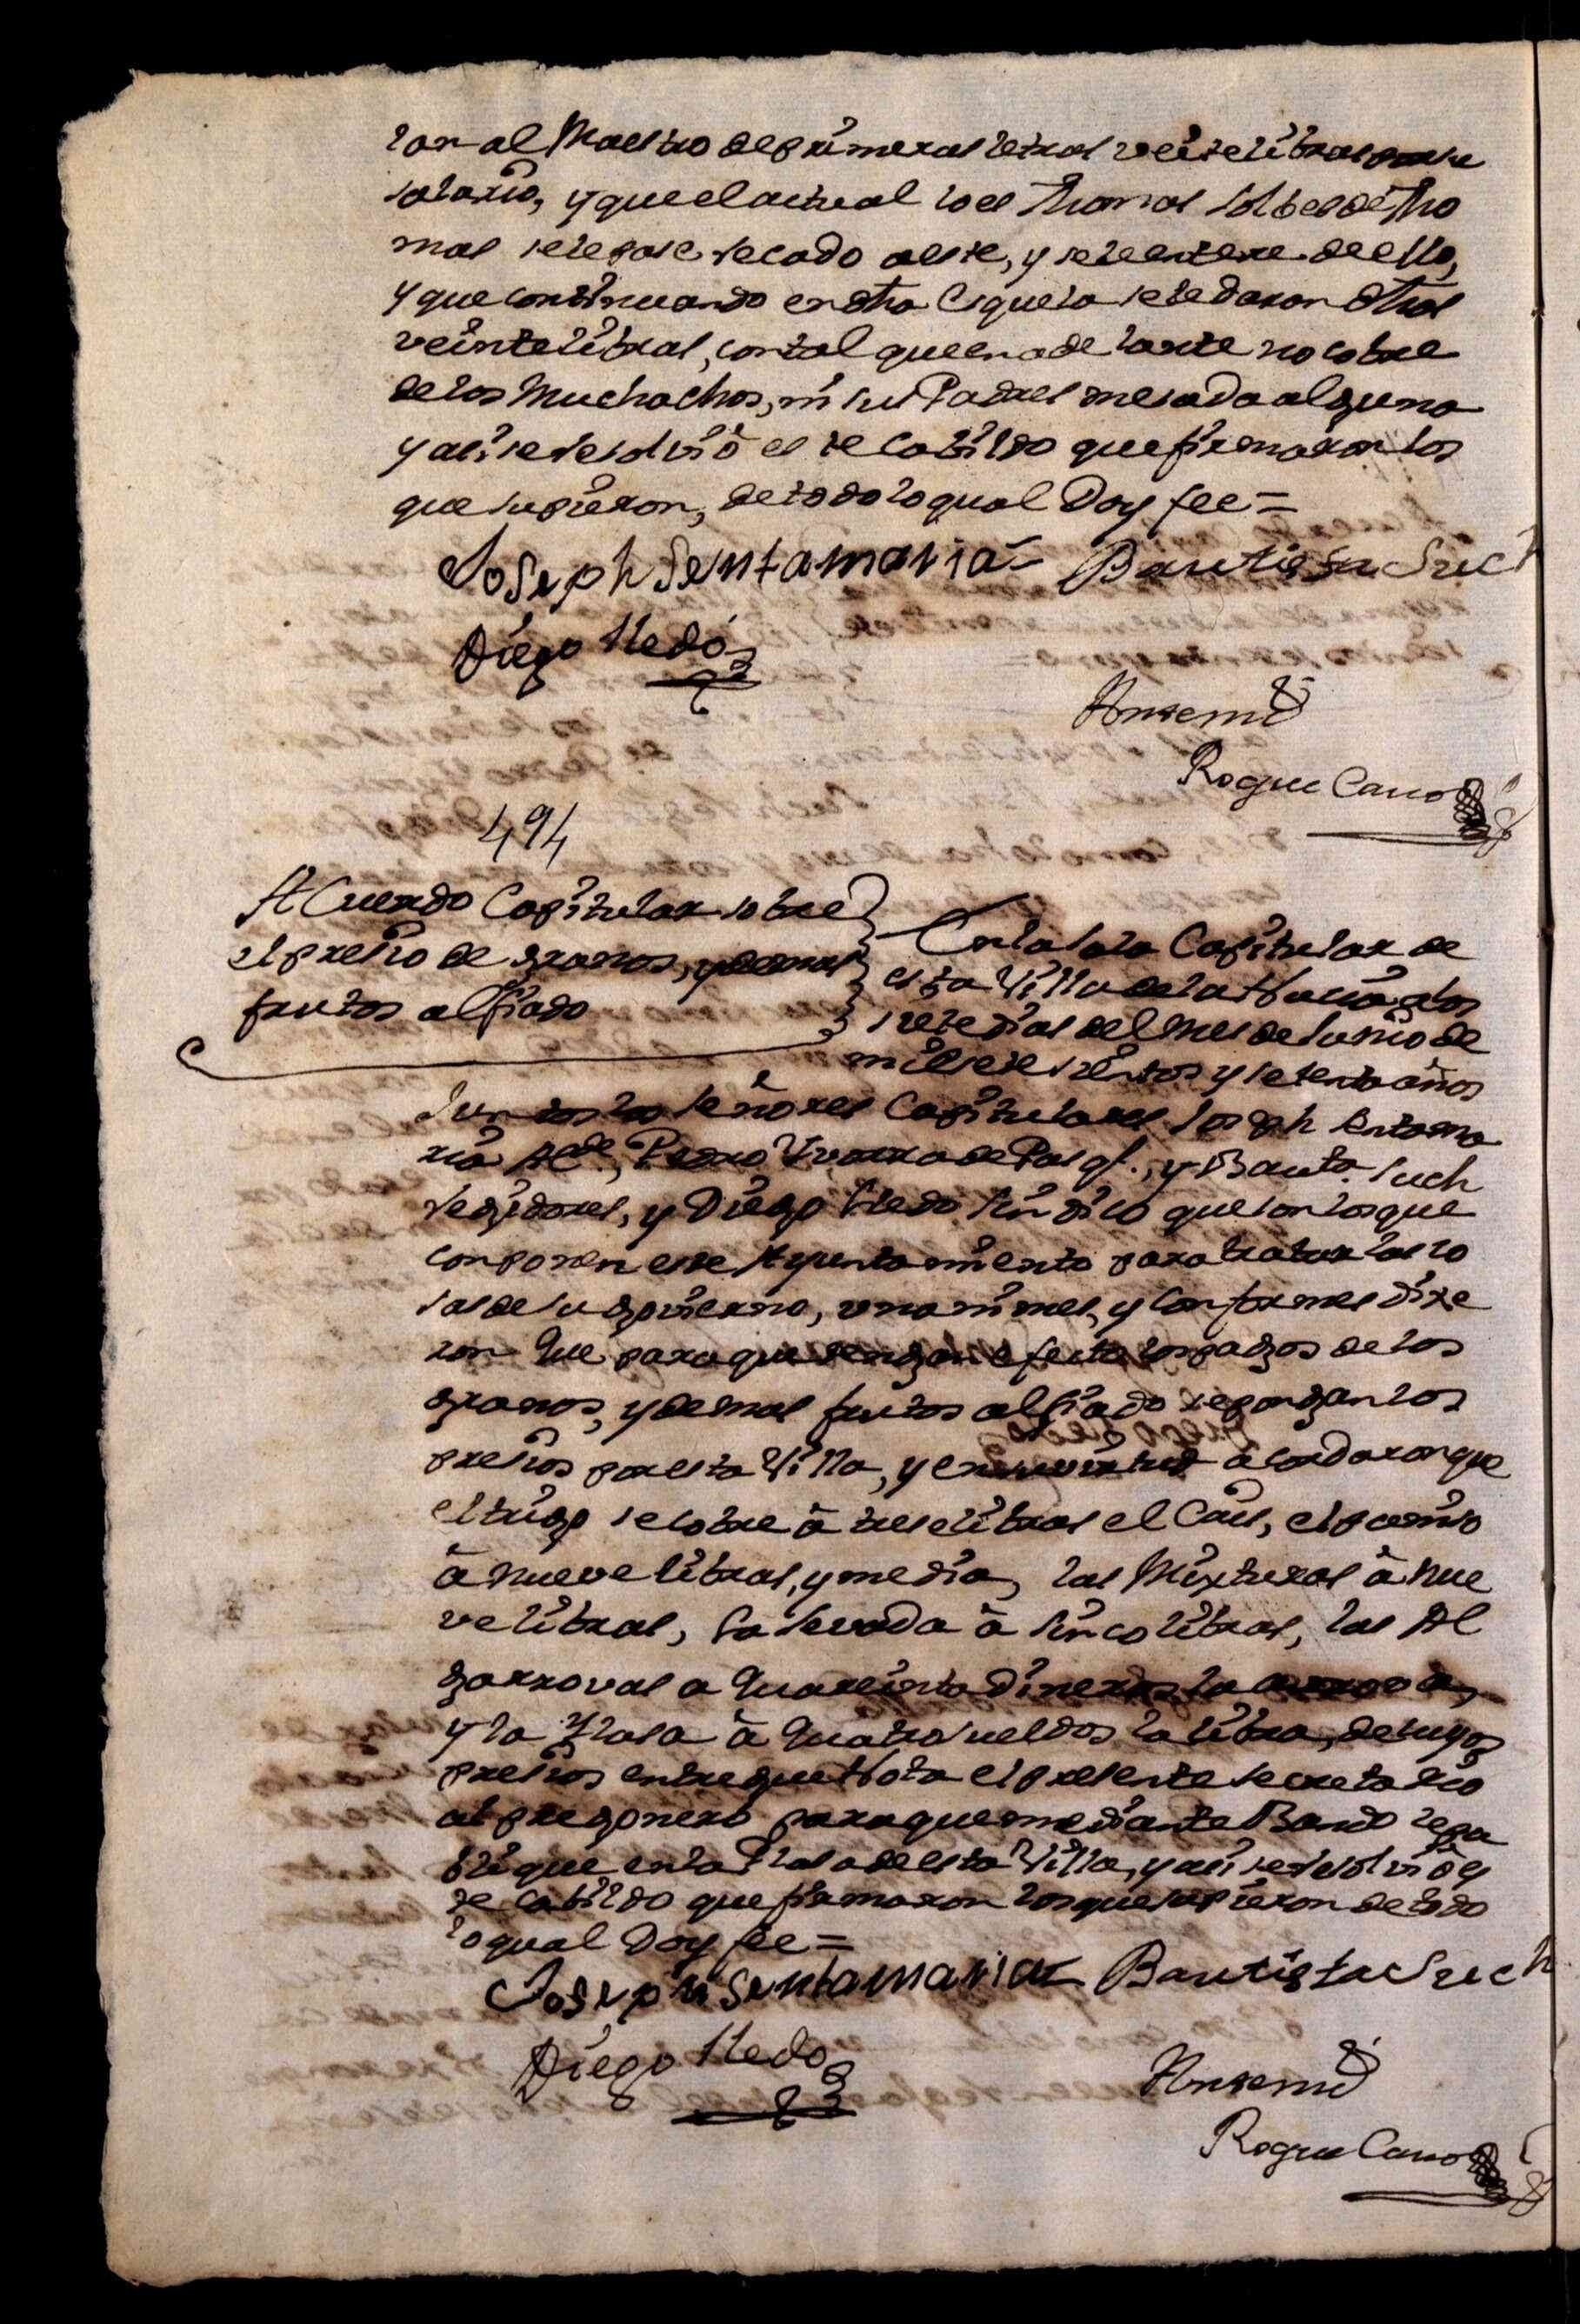 ran al Maestro de primeras letras veite libras por su
salario, y que el actual lo es Thomas Solbes de Tho
mas se le pase recado a este, y se le entere de ello,
y que continuando en dha Esquela se le daran dhas
veinte libras, con tal que en adelante no cobre
de los Muchachos, ni sus Padres mesada alguna
y asi se resolvió es te Cabildo que firmaron los
que supieron, de todo lo qual Doy fee =
Joseph Sentamaria = Bautista Such
Diego Lledó
Antemi
Roque Cano
494
Acuerdo Capitular sobre
el presio de granos, y demas
frutos al fiado
En la sala Capitular de
esta Villa de la Nucia a los
siete dias del mes de Junio de
mil sete sientos y setenta años
Juntos los señores Capitulares Joseph Sentama
ria Alde., Pedro Yvorra de Pasql., y Bauta. Such
Regidores, y Diego Lledo Sindico que son los que
componen este Ayuntamiento para tratar las co
sas de su govierno, unanimes, y conformes dixe
ron Que para que tengan efecto los pagos de los
granos, y demas frutos al fiado se pongan los
presios por esta Villa, y en su virtud acordaron que
el trigo se cobre à trese libras el Cais, el paniso
à nueve libras, y media, las Mixturas à nue
ve libras, la sevada à sinco libras, las Al
garrovas a Quareinta Dineros la arroba,
y la Llana à Quatro sueldos la libra, de cuyos
presios entregue Nota el presente secretario
al pregonero para que mediante Bando lo pu
blique en la Plasa de esta Villa, y asi se resolvió es
te cabildo que firmaron los que supieron de todo
lo qual Doy fee =
Joseph Sentamaria = Bautista Such
Diego Lledo
Antemi
Roque Cano